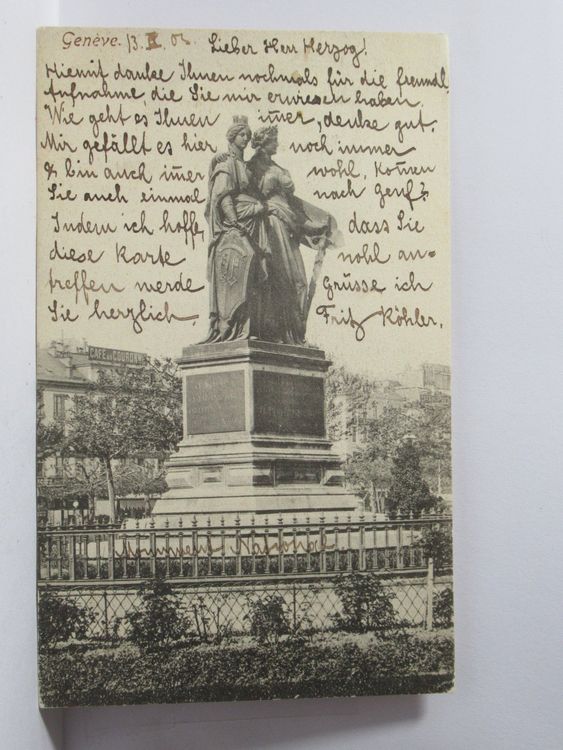 Genève. 13. III. 02. Lieber Herr Herzog!
Hiemit danke Ihnen nochmals für die freundl.
Aufnahme, die Sie mir erwiesen haben.
Wie geht es Ihnen im̄er, denke gut.
Mir gefällt es hier noch immer
& bin auch im̄er wohl, kom̄en
Sie auch einmal nach Genf?
Indem ich hoffe, dass Sie
diese Karte wohl an=
treffen werde grüsse ich
Sie herzlich. Fritz Köhler.
CAFÉ DE COURONNE
Monument National